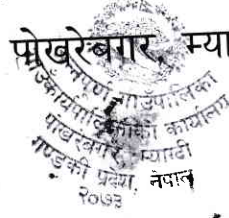 पोखरेबगर, म्या
अन्नपूर्ण गाउँपालिका
गाउँ कार्यपालिकाको कार्यालय
पोखरेबगर, म्याग्दी
गण्डकी प्रदेश, नेपाल
२०७३